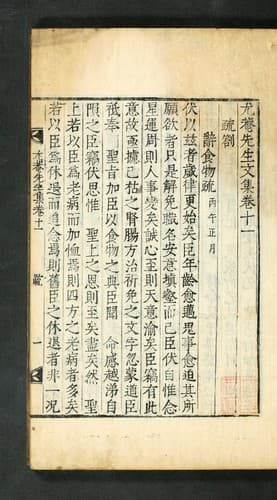 尤菴先生文集卷十一
疏劄
辭食物疏 丙午正月
伏以玆者歲律更始矣臣年齡愈邁思事愈迫其所
願欲者只是解免職名安意塡壑而已臣伏自惟念
星運周則人事變矣誠心至則天意渝矣臣竊有此
意故亟據已枯之腎腸方治祈免之文字忽蒙道臣
祗奉 聖旨加臣以食物之典臣聞 命感越涕自
隕之臣竊伏思惟 聖上之恩則至矣盡矣然 聖
上若以臣爲老病而加恤焉則四方之老病者多矣
若以臣爲休退而追念焉則舊臣之休退者非一況
尤菴先生文集卷十一 疏 一